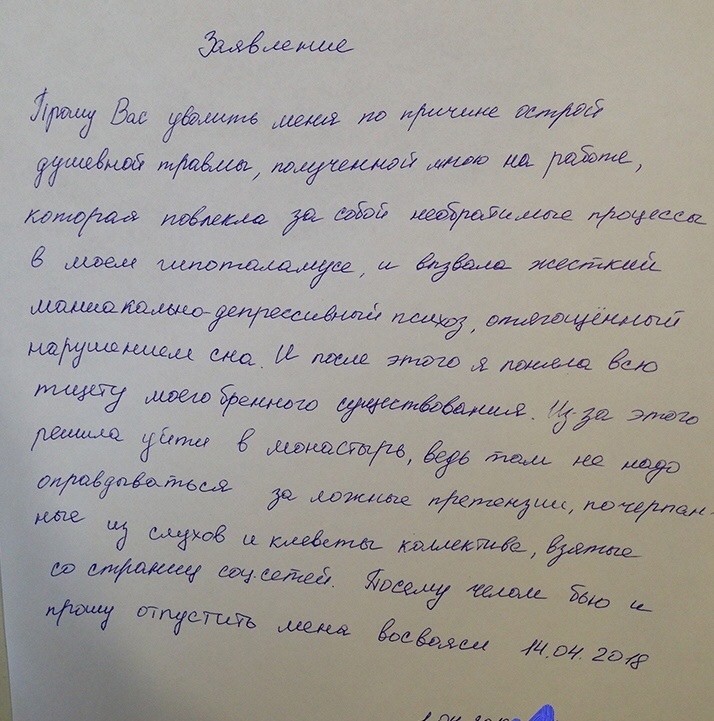 Заявление
Прошу Вас уволить меня по причине острой
душевной травмы, полученной мною на работе,
которая повлекла за собой необратимые процессы
в моем гипоталамусе, и вызвала жесткий
маниакально-депрессивный психоз, отягощённый
нарушением сна. И после этого я поняла всю
тщету моего бренного существования. Из-за этого
решила уйти в монастырь, ведь там не надо
оправдываться за ложные претензии, почерпан-
ные из слухов и клеветы коллектива, взятые
со страниц соц.сетей. Посему челом бью и
прошу отпустить мена восвояси 14.04.2018